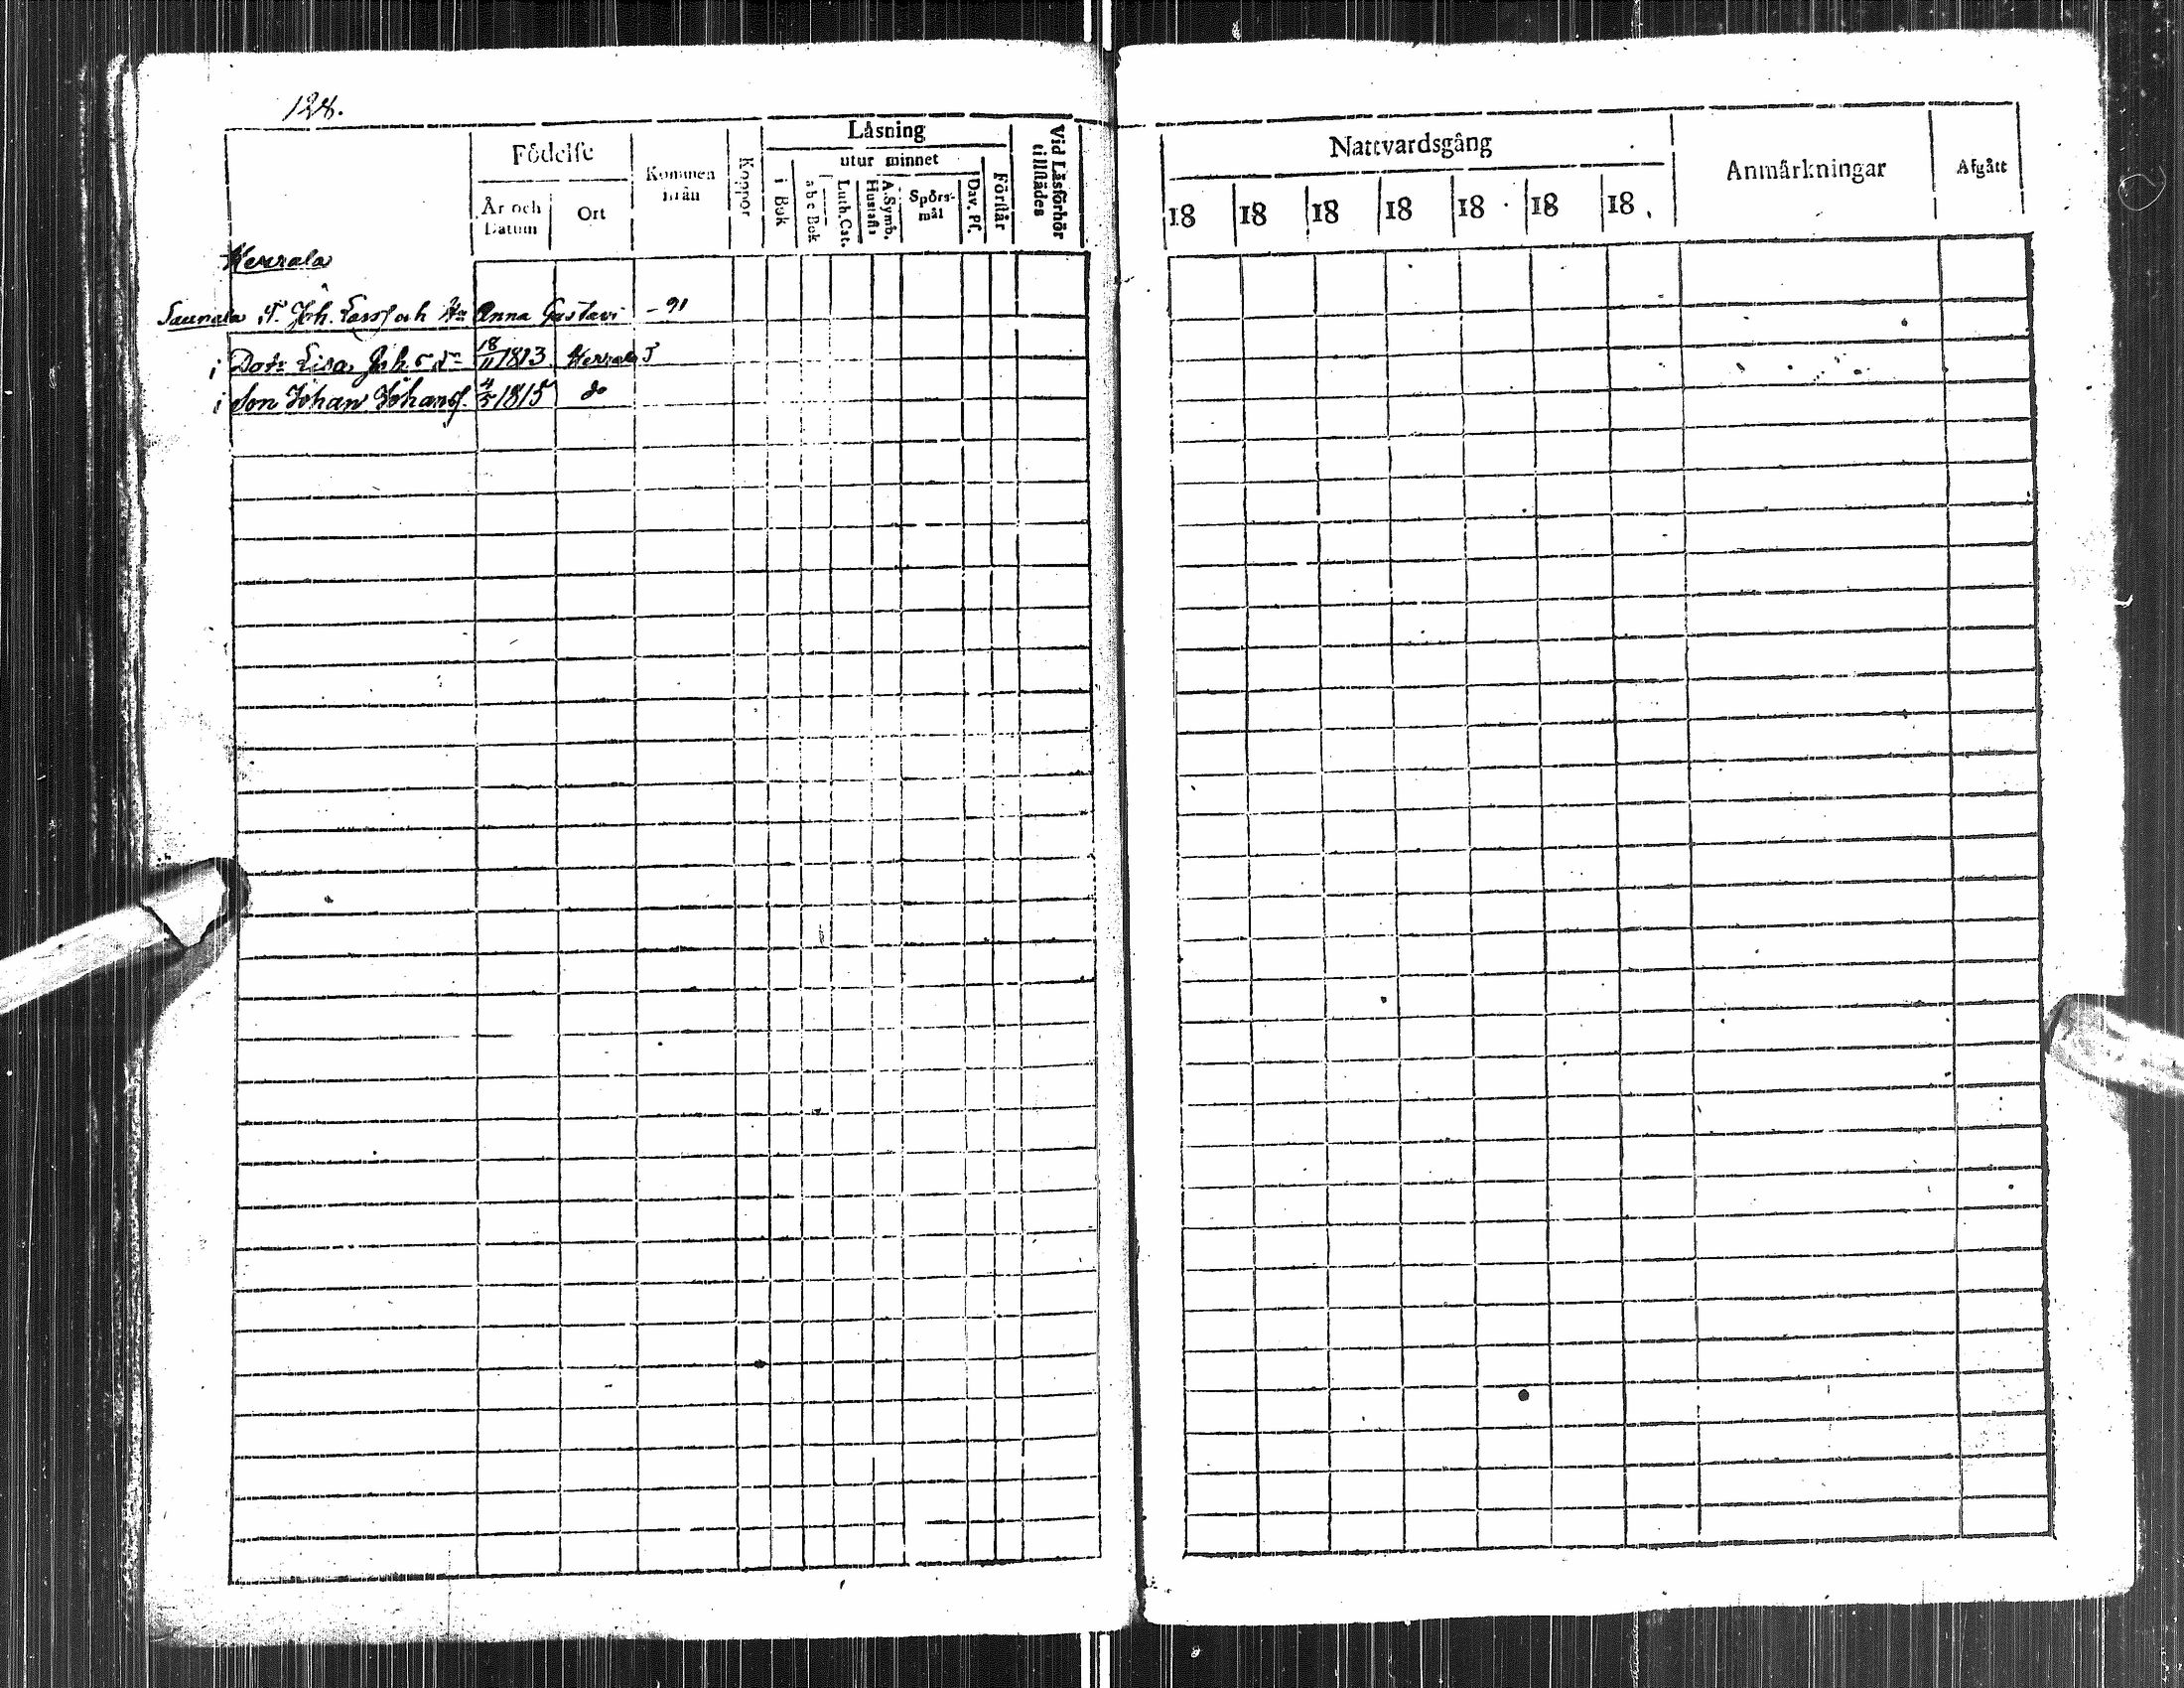 128.
Födelse
Kommen ifrån
Koppor
Låsning
utur minnet
Vid Låsförhör tillstädes
År och Datum
Ort
i Bok
abc Bok
Luth. Cat.
A. Symb. Hustafla
Spörsmål
Dav. Ps.
Förstår
Nattvardsgång
Anmärkningar
Afgått
18 18 18 18 18 18 18
Kerrala
Joh. Larss och Hu Anna Gustavi - 91
i Dotr Lisa Joh 18/11 1813 Kerrala
i Son Johan Johans. 4/5 1815 do